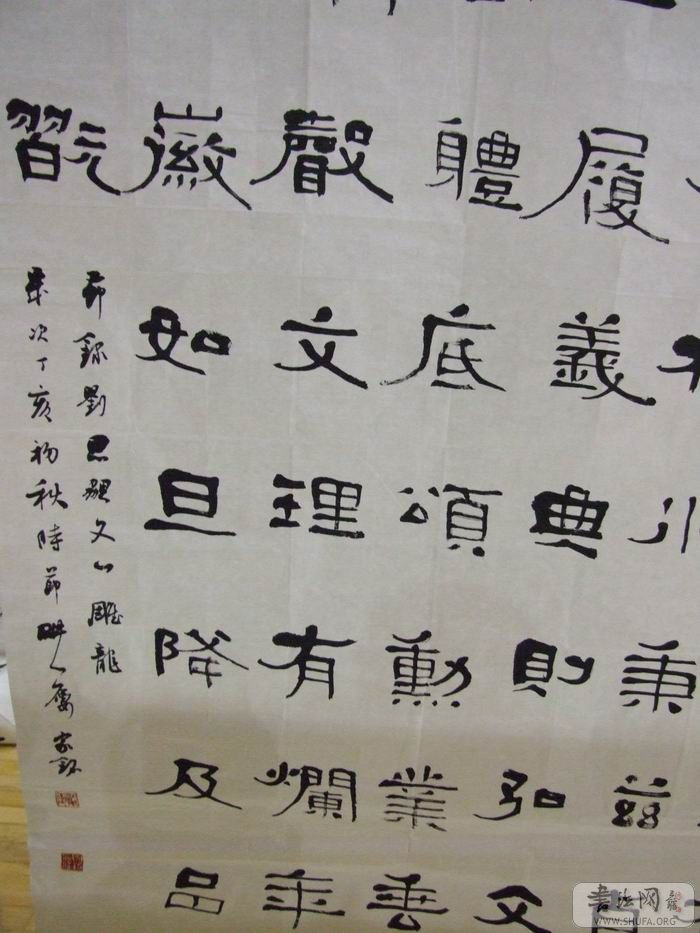 秉茲
履義典則弘文
體底頌勳業垂
聲文理有爛年
徽如旦降及品
翫
節錄劉思勰文心雕龍
歲次丁亥初秋時節
書法网
WWW.SHUFA.ORG